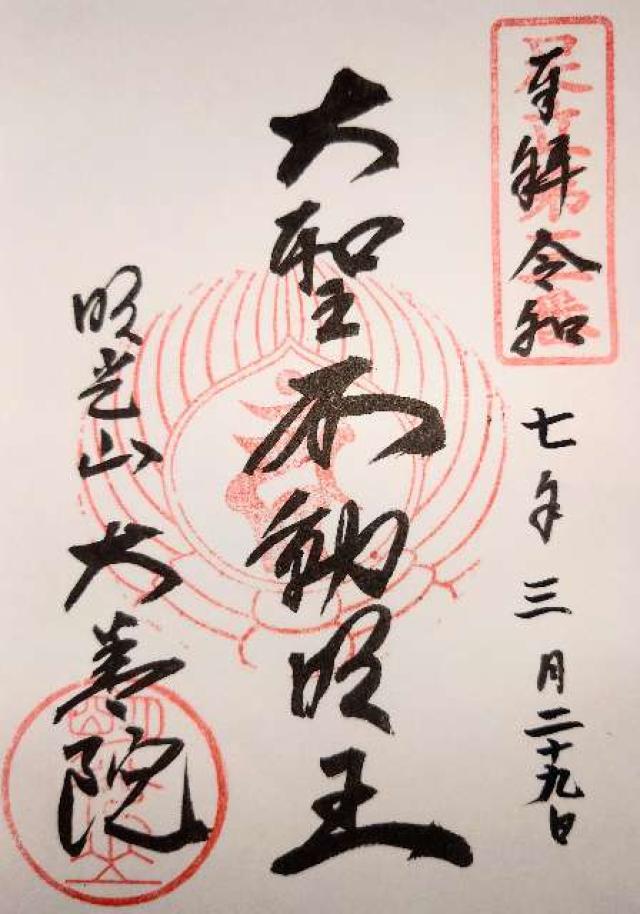 奉拝令和七年三月二十九日
大聖不動明王
明光山大善院